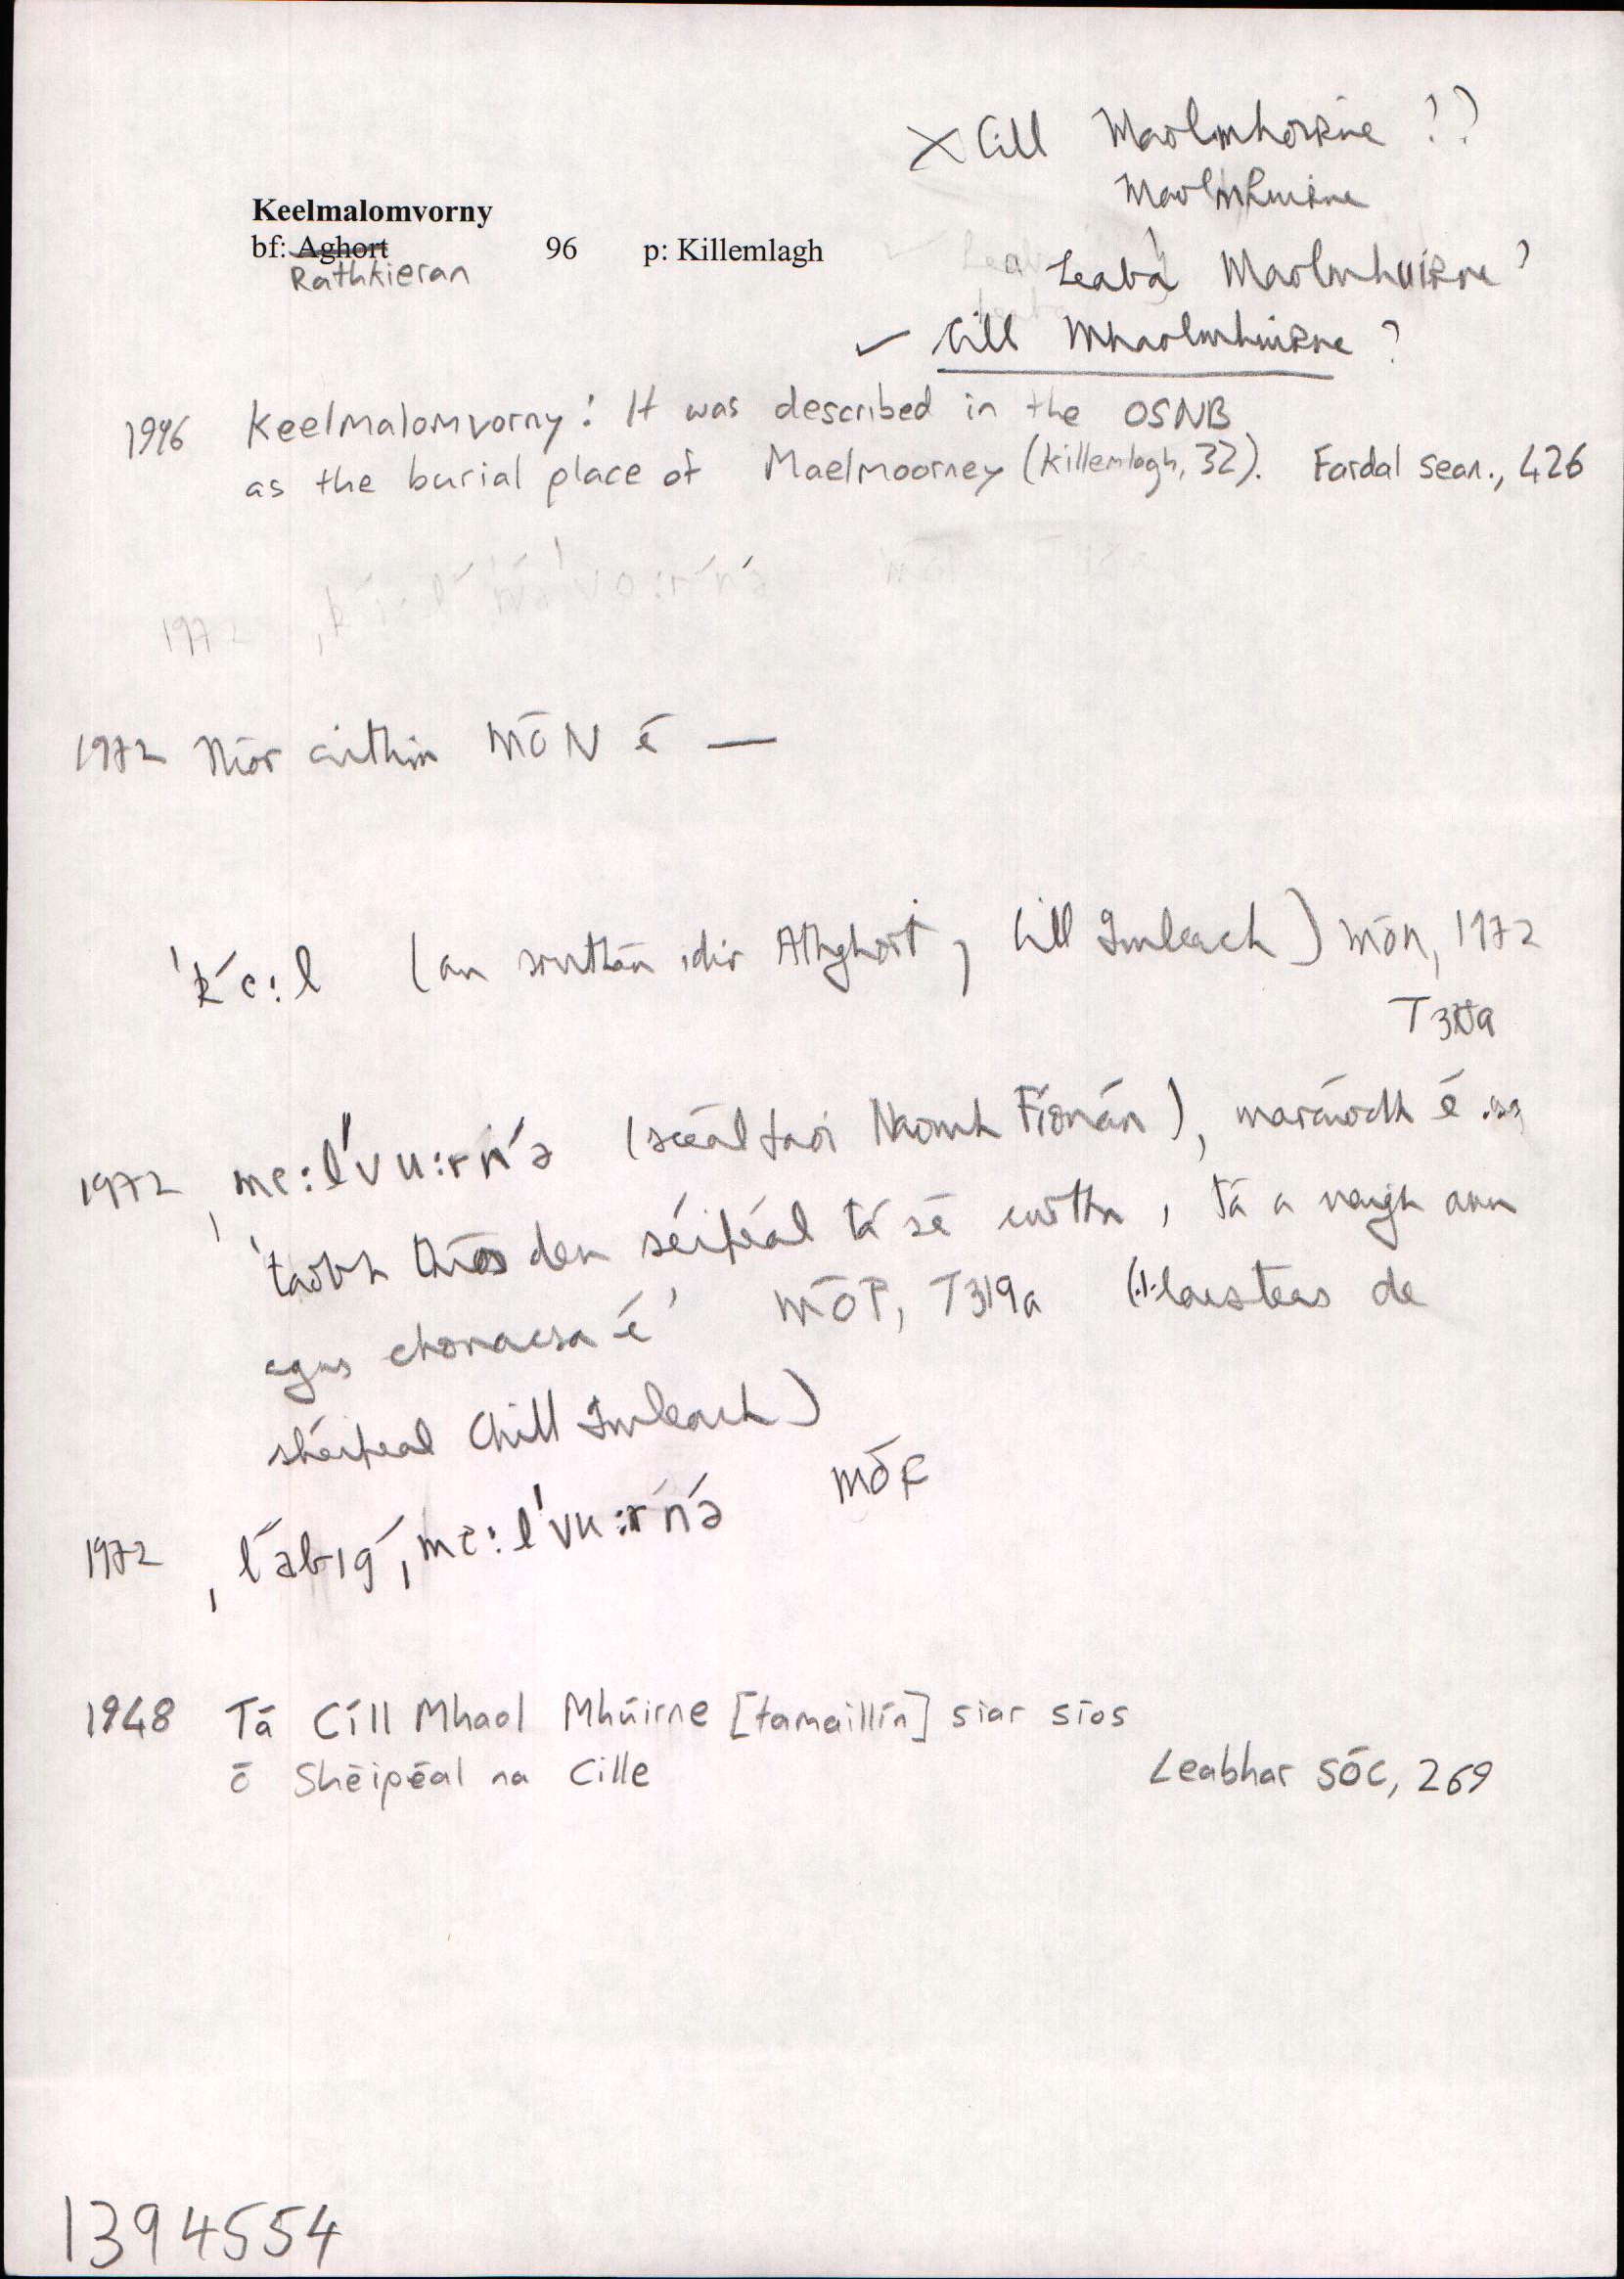 X Cill Maolmhoirne ??
Maolmhuirne
Keelmalomvorny
bf: Aghort 96 p: Killemlagh
Rathkieran
a Leaba Maolmhuirne?
✓ Cill Mhaolmhuirne ?
1996 Keelmalomvorny: It was described in the OSNB
as the burial place of Maelmoorney (Killemlagh, 32). Fardal Sean., 426
1972
1972 Níor airthin MÓN é —
ˈḱe:l (an sruthán idir Athghort ⁊ Cill Imleach) MÓN, 1972
1972 ˌme:lˈvu:rńə (scéal faoi Naomh Fíonán), maraíodh é
'taobh thíos den séipéal tá sé curtha, tá a uaigh ann
agus chonacsa é' MÓP, T319a (.i. laisteas de
shéipéal Chill Imleach)
1972 ˌĺabiǵˌme:lˈvu:ŕńə MÓF
1948 Tá Cíll Mhaol Mhúirne [tamaillín] siar síos
ó Shéipéal na Cille Leabhar SÓC, 269
1394554